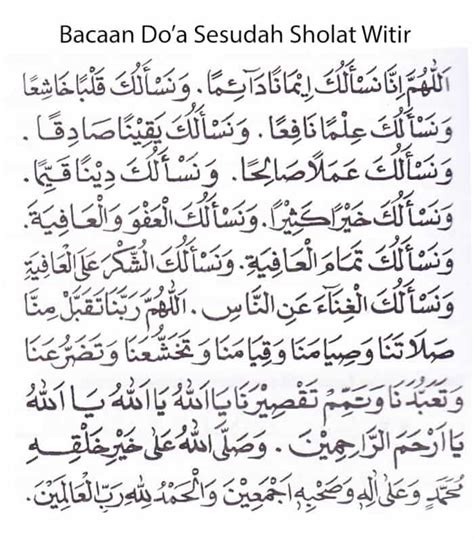 Bacaan Do’a Sesudah Sholat Witir
اَللّٰهُمَّ اِنَّا نَسْأَلُكَ اِيْمَانًا دَآئِمًا. وَنَسْأَلُكَ قَلْبًا خَاشِعًا
وَنَسْأَلُكَ عِلْمًا نَافِعًا. وَنَسْأَلُكَ يَقِيْنًا صَادِقًا.
وَنَسْأَلُكَ عَمَلًا صَالِحًا. وَنَسْأَلُكَ دِيْنًا قَيِّمًا.
وَنَسْأَلُكَ خَيْرًا كَثِيْرًا. وَنَسْأَلُكَ الْعَفْوَ وَالْعَافِيَةَ.
وَنَسْأَلُكَ تَمَامَ الْعَافِيَةِ. وَنَسْأَلُكَ الشُّكْرَ عَلَى الْعَافِيَةِ
وَنَسْأَلُكَ الْغِنَآءَ عَنِ النَّاسِ. اَللّٰهُمَّ رَبَّنَا تَقَبَّلْ مِنَّا
صَلَاتَنَا وَصِيَامَنَا وَقِيَامَنَا وَتَخَشُّعَنَا وَتَضَرُّعَنَا
وَتَعَبُّدَنَا وَتَمِّمْ تَقْصِيْرَنَا يَا اَللهُ يَا اَللهُ يَا اَللهُ
يَا اَرْحَمَ الرَّاحِمِيْنَ. وَصَلَّى اللهُ عَلَى خَيْرِ خَلْقِهِ
مُحَمَّدٍ وَعَلَى اٰلِهِ وَصَحْبِهِ اَجْمَعِيْنَ وَالْحَمْدُ لِلّٰهِ رَبِّ الْعَالَمِيْنَ.